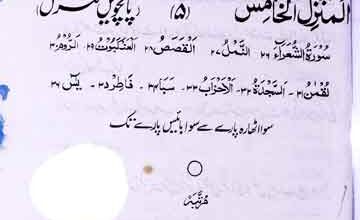 المنزل الخامس (۵) پانچویں منزل
سورة الشعراء ۲۶ النمل ۲۷ القصص ۲۸ العنکبوت ۲۹ الروم ۳۰
لقمن ۳۱ السجدة ۳۲ الاحزاب ۳۳ سبا ۳۴ فاطر ۳۵ یٰس ۳۶
سوا اٹھارہ پارے سے سوا بائیس پارے تک
مرتبہ